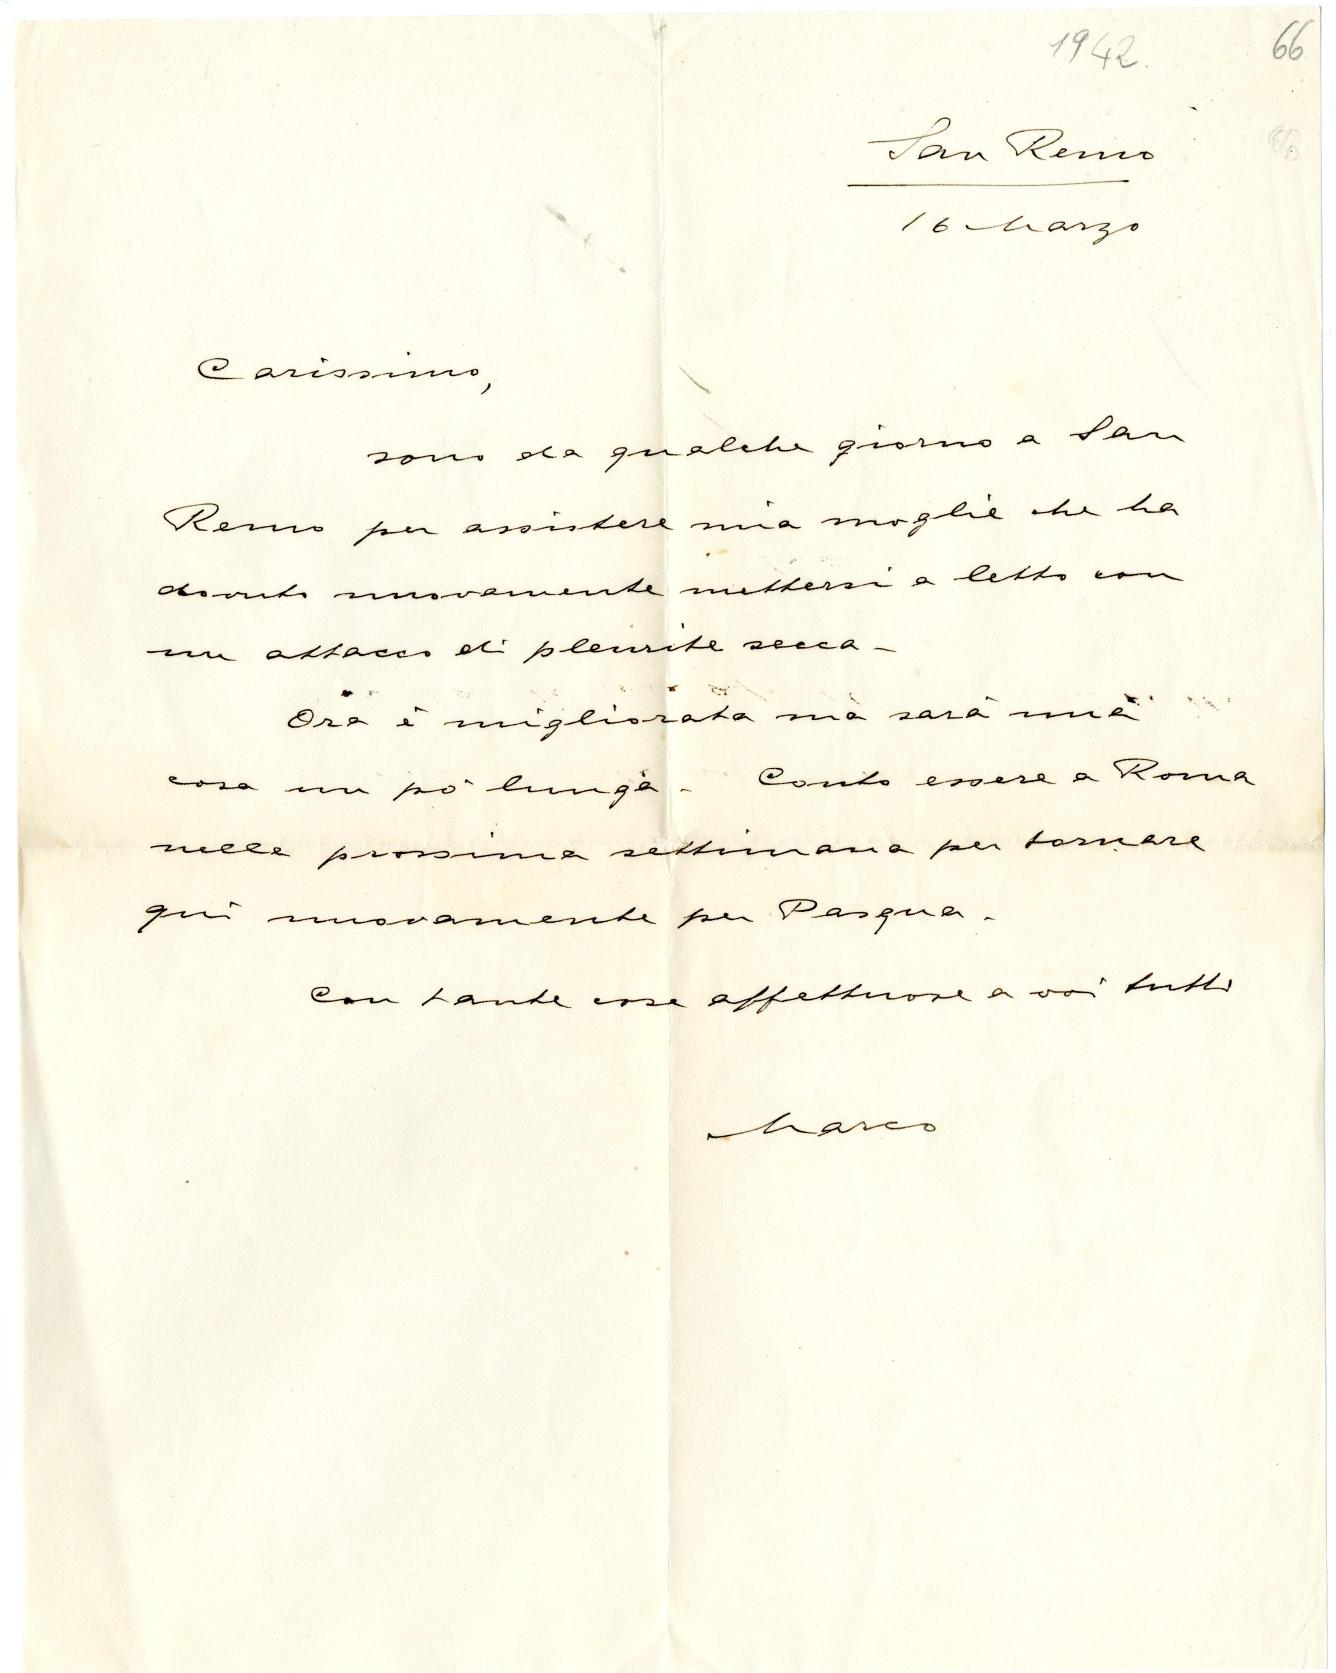 1942.
66
San Remo
16 Marzo
Carissimo,
sono da qualche giorno a San
Remo per assistere mia moglie che ha
dovuto nuovamente mettersi a letto con
un attacco di pleurite secca -
Ora è migliorata ma sarà una
cosa un pò lunga - Conto essere a Roma
nella prossima settimana per tornare
qui nuovamente per Pasqua -
Con tante cose affettuose a voi tutti
Marco